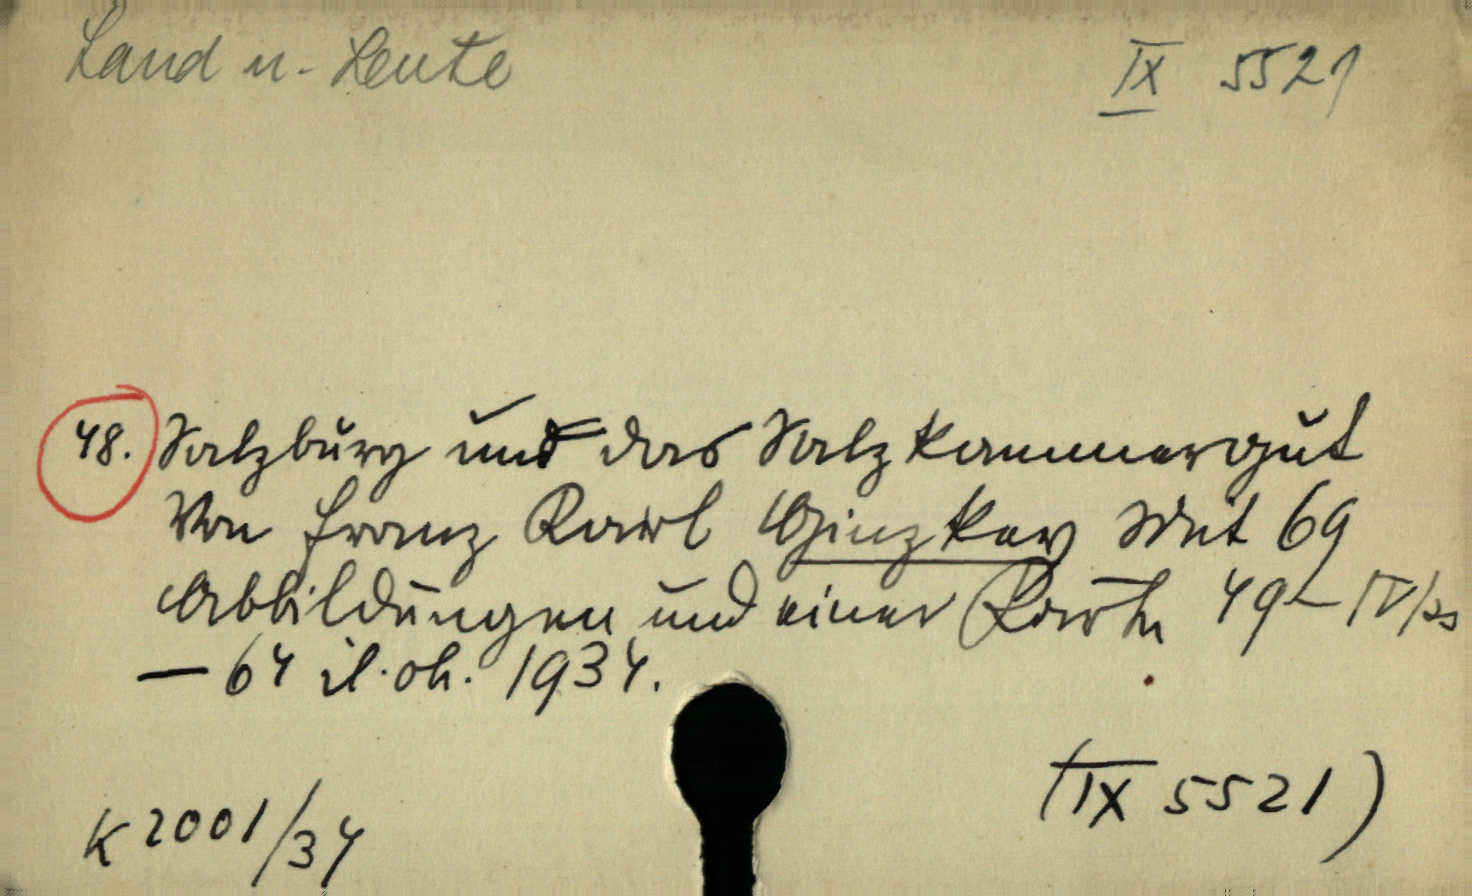 Land u. Leute IX 5521
48. Salzburg und das Salzkammergut
Von Franz Karl Ginzkey Mit 69
Abbildungen und einer Karte 49- IV/
— 64 il. oh. 1934.
K 2001/34 (IX 5521)